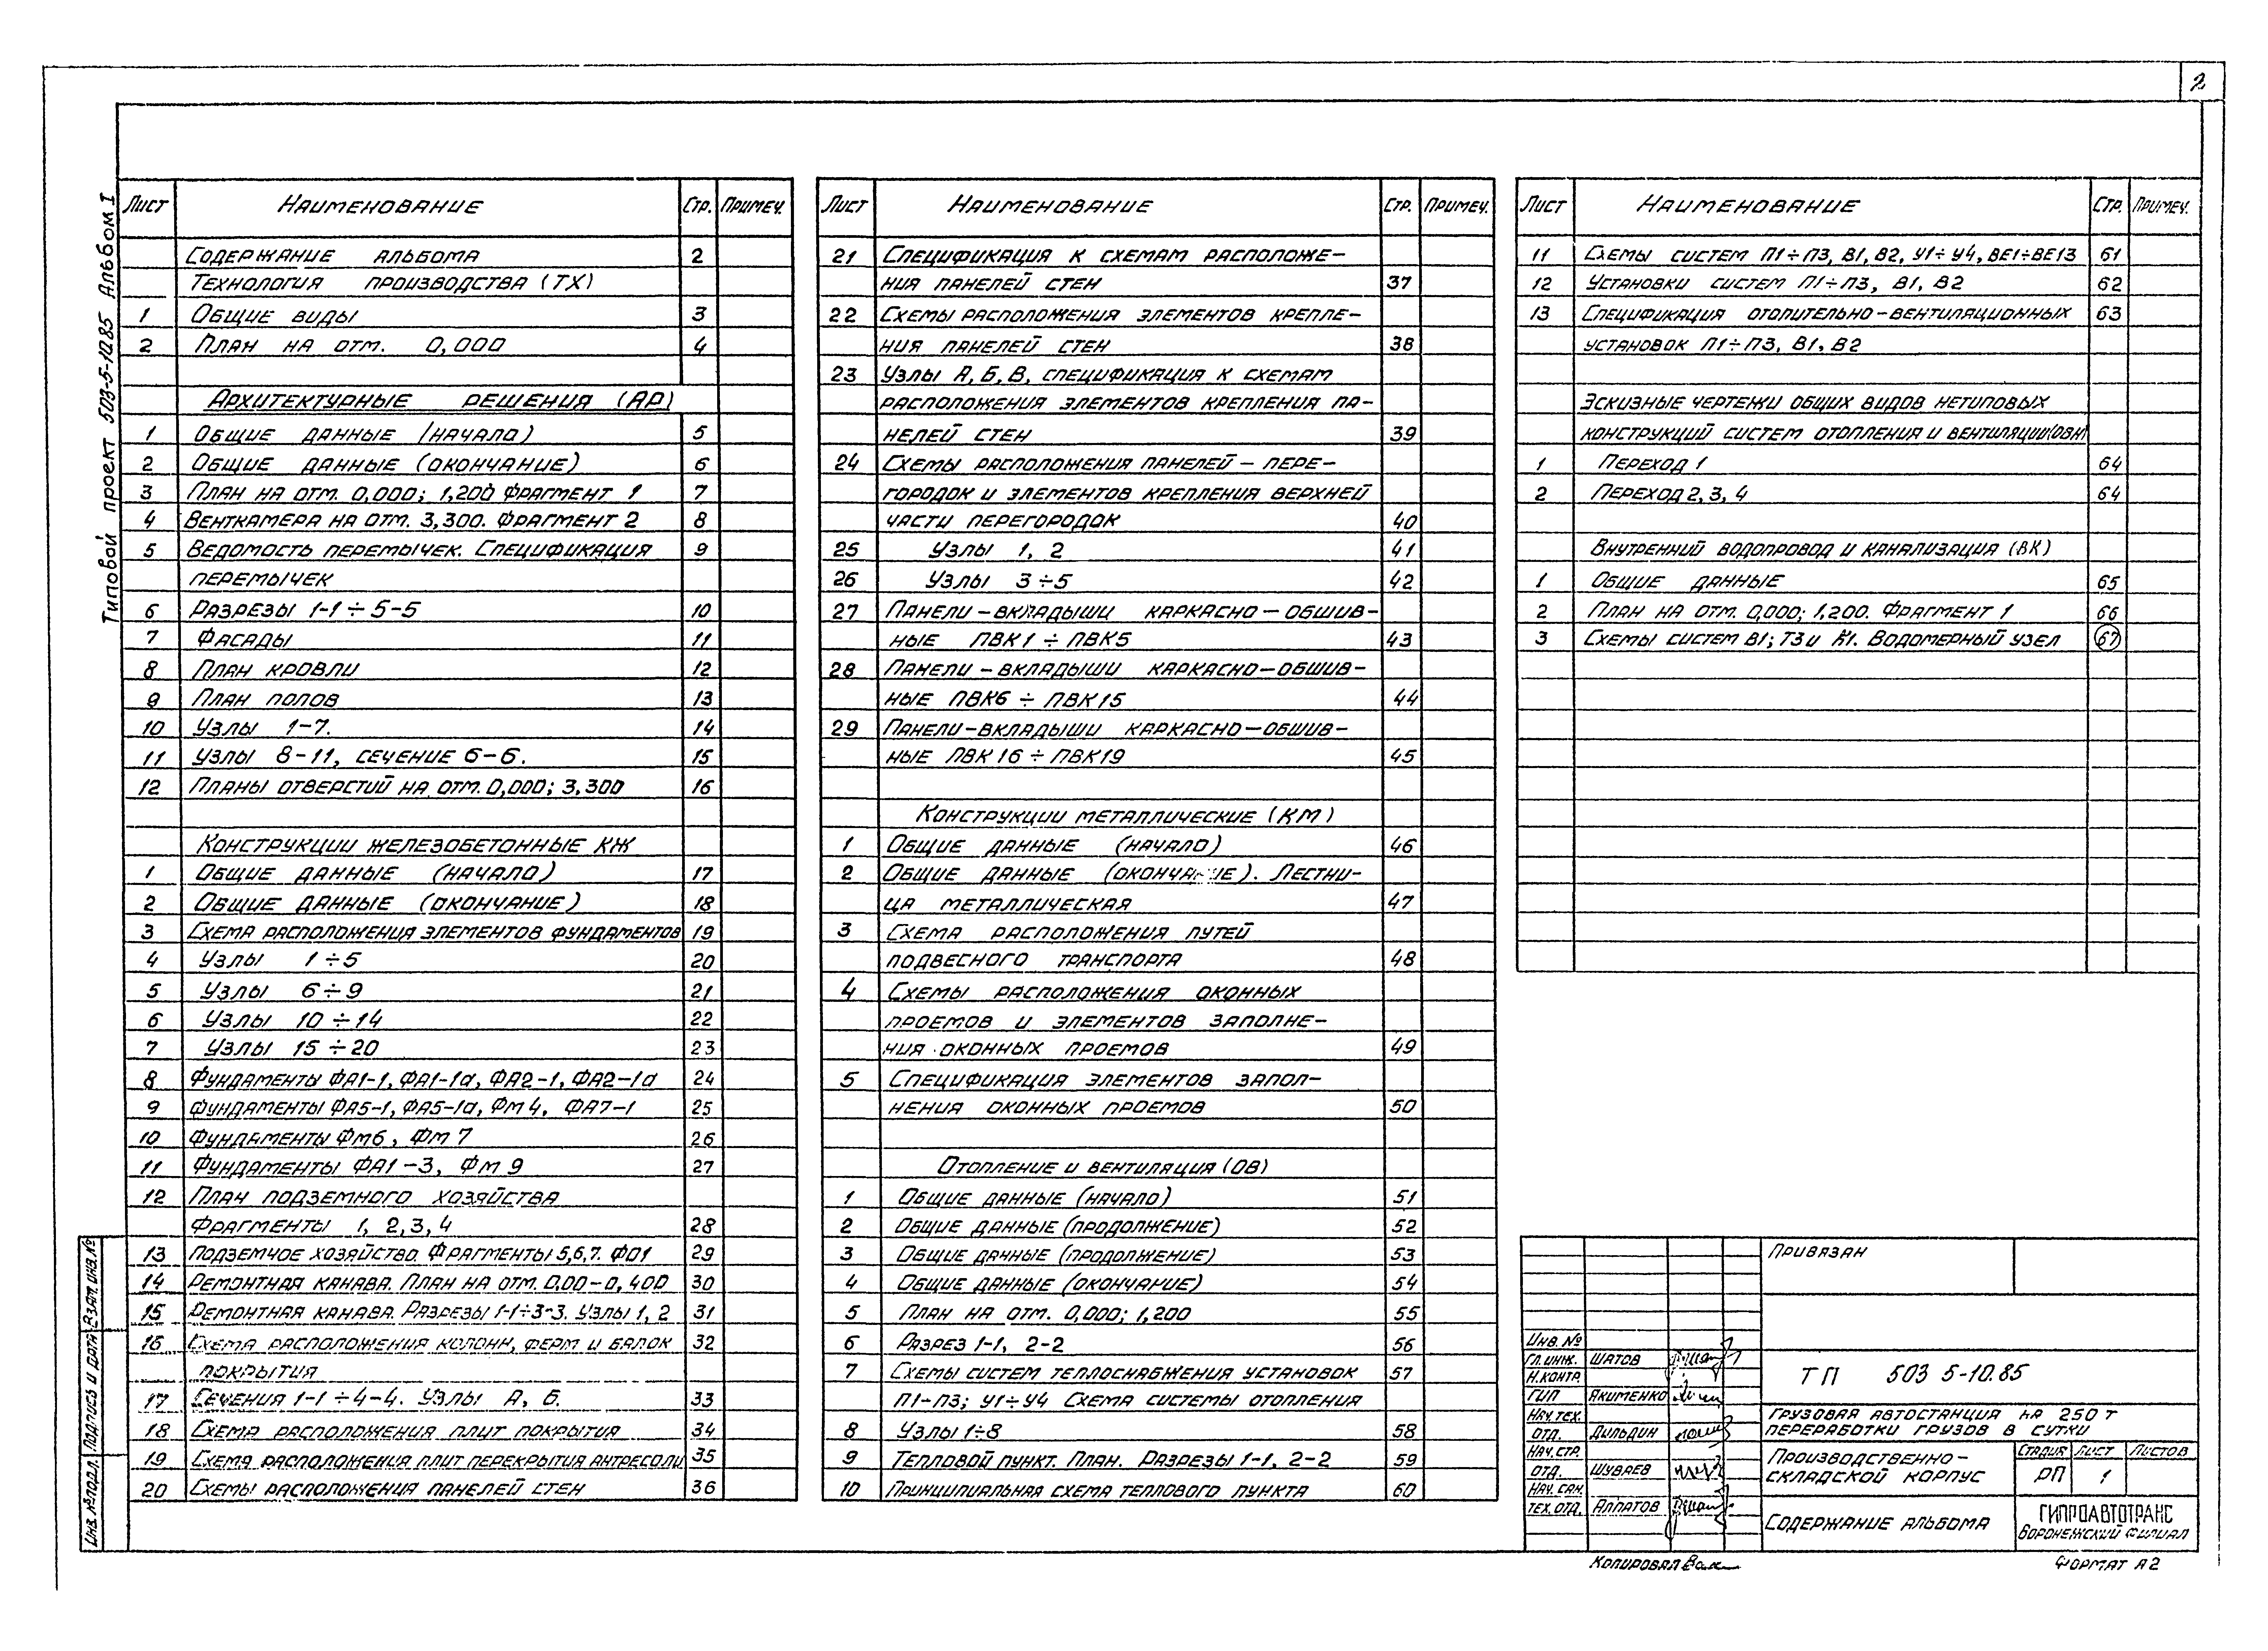 2
Типовой проект 503-5-10.85 Альбом I
Лист Наименование Стр. Примеч.
Содержание альбома 2
Технология производства (ТХ)
1 Общие виды 3
2 План на отм. 0,000 4
Архитектурные решения (АР)
1 Общие данные (начало) 5
2 Общие данные (окончание) 6
3 План на отм. 0,000; 1,200 Фрагмент 1 7
4 Венткамера на отм. 3,300. Фрагмент 2 8
5 Ведомость перемычек. Спецификация 9
перемычек
6 Разрезы 1-1 ÷ 5-5 10
7 Фасады 11
8 План кровли 12
9 План полов 13
10 Узлы 1-7. 14
11 Узлы 8-11, сечение 6-6. 15
12 Планы отверстий на отм. 0,000; 3,300 16
Конструкции железобетонные КЖ
1 Общие данные (начало) 17
2 Общие данные (окончание) 18
3 Схема расположения элементов фундаментов 19
4 Узлы 1÷5 20
5 Узлы 6÷9 21
6 Узлы 10÷14 22
7 Узлы 15÷20 23
8 Фундаменты ФА1-1, ФА1-1а, ФА2-1, ФА2-1а 24
9 Фундаменты ФА5-1, ФА5-1а, Фм4, ФА7-1 25
10 Фундаменты Фм6, Фм7 26
11 Фундаменты ФА1-3, Фм9 27
12 План подземного хозяйства
Фрагменты 1, 2, 3, 4 28
13 Подземное хозяйство. Фрагменты 5,6,7. Ф01 29
14 Ремонтная канава. План на отм. 0,00-0,400 30
15 Ремонтная канава. Разрезы 1-1÷3-3. Узлы 1, 2 31
16 Схема расположения колонн, ферм и балок 32
покрытия
17 Сечения 1-1÷4-4. Узлы А, Б. 33
18 Схема расположения плит покрытия 34
19 Схема расположения плит перекрытия антресоли 35
20 Схемы расположения панелей стен 36
Лист Наименование Стр. Примеч.
21 Спецификация к схемам расположе-
ния панелей стен 37
22 Схемы расположения элементов крепле-
ния панелей стен 38
23 Узлы А, Б, В, спецификация к схемам
расположения элементов крепления па-
нелей стен 39
24 Схемы расположения панелей - пере-
городок и элементов крепления верхней
части перегородок 40
25 Узлы 1, 2 41
26 Узлы 3÷5 42
27 Панели-вкладыши каркасно-обшив-
ные ПВК1 ÷ ПВК5 43
28 Панели-вкладыши каркасно-обшив-
ные ПВК6 ÷ ПВК15 44
29 Панели-вкладыши каркасно-обшив-
ные ПВК16 ÷ ПВК19 45
Конструкции металлические (КМ)
1 Общие данные (начало) 46
2 Общие данные (окончание). Лестни-
ца металлическая 47
3 Схема расположения путей
подвесного транспорта 48
4 Схемы расположения оконных
проемов и элементов заполне-
ния оконных проемов 49
5 Спецификация элементов запол-
нения оконных проемов 50
Отопление и вентиляция (ОВ)
1 Общие данные (начало) 51
2 Общие данные (продолжение) 52
3 Общие данные (продолжение) 53
4 Общие данные (окончание) 54
5 План на отм. 0,000; 1,200 55
6 Разрез 1-1, 2-2 56
7 Схемы систем теплоснабжения установок 57
П1-П3; У1÷У4 Схема системы отопления
8 Узлы 1÷8 58
9 Тепловой пункт. План. Разрезы 1-1, 2-2 59
10 Принципиальная схема теплового пункта 60
Лист Наименование Стр. Примеч.
11 Схемы систем П1÷П3, В1, В2, У1÷У4, ВЕ1÷ВЕ13 61
12 Установки систем П1÷П3, В1, В2 62
13 Спецификация отопительно-вентиляционных 63
установок П1÷П3, В1, В2
Эскизные чертежи общих видов нетиповых
конструкций систем отопления и вентиляции (ОВН)
1 Переход 1 64
2 Переход 2, 3, 4 64
Внутренний водопровод и канализация (ВК)
1 Общие данные 65
2 План на отм. 0,000; 1,200. Фрагмент 1 66
3 Схемы систем В1; Т3 и К1. Водомерный узел 67
Привязан
Инв. №
Гл. инж. Шатов
Н. контр.
ГИП Якименко
Нач. тех. отд. Дильдин
Нач. стр. отд. Шуваев
Нач. сан. тех. отд. Алпатов
ТП 503 5-10.85
Грузовая автостанция на 250 т
переработки грузов в сутки
Производственно-
складской корпус
Стадия Лист Листов
РП 1
Содержание альбома
ГИПРОАВТОТРАНС
Воронежский филиал
Копировал
Формат А2
Инв. № подл. Подпись и дата Взам. инв. №